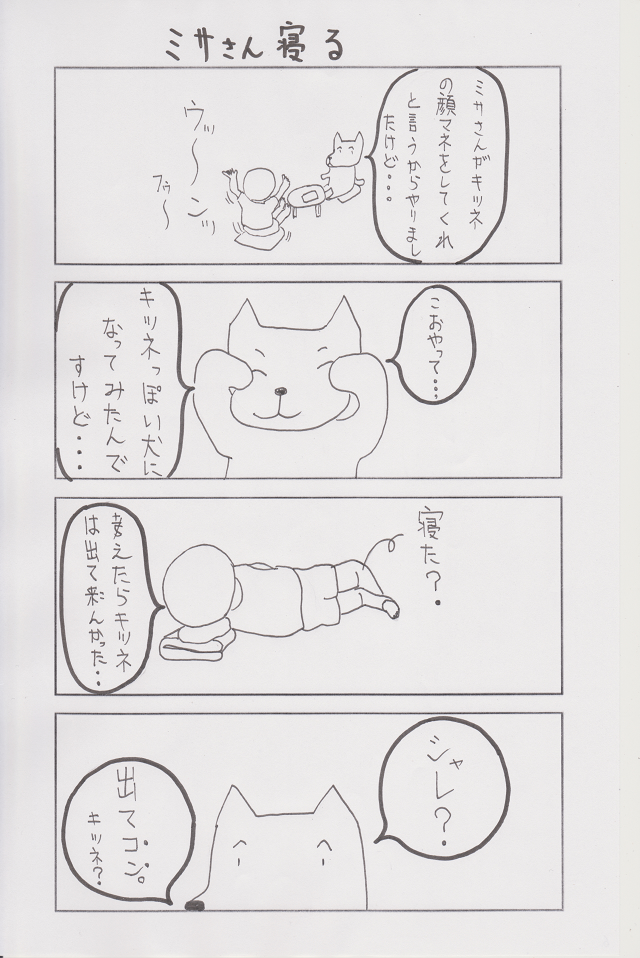 ミサさん寝る
ミサさんがキツネ
の顔マネをしてくれ
と言うからやりまし
たけど・・・
ウッ〜ンッ
フゥ〜
こおやって・・・、
キツネっぽい犬に
なってみたんで
すけど・・・
寝た?・
考えたらキツネ
は出て来んかった・・
シャレ?・
出てコン。
キツネ?・